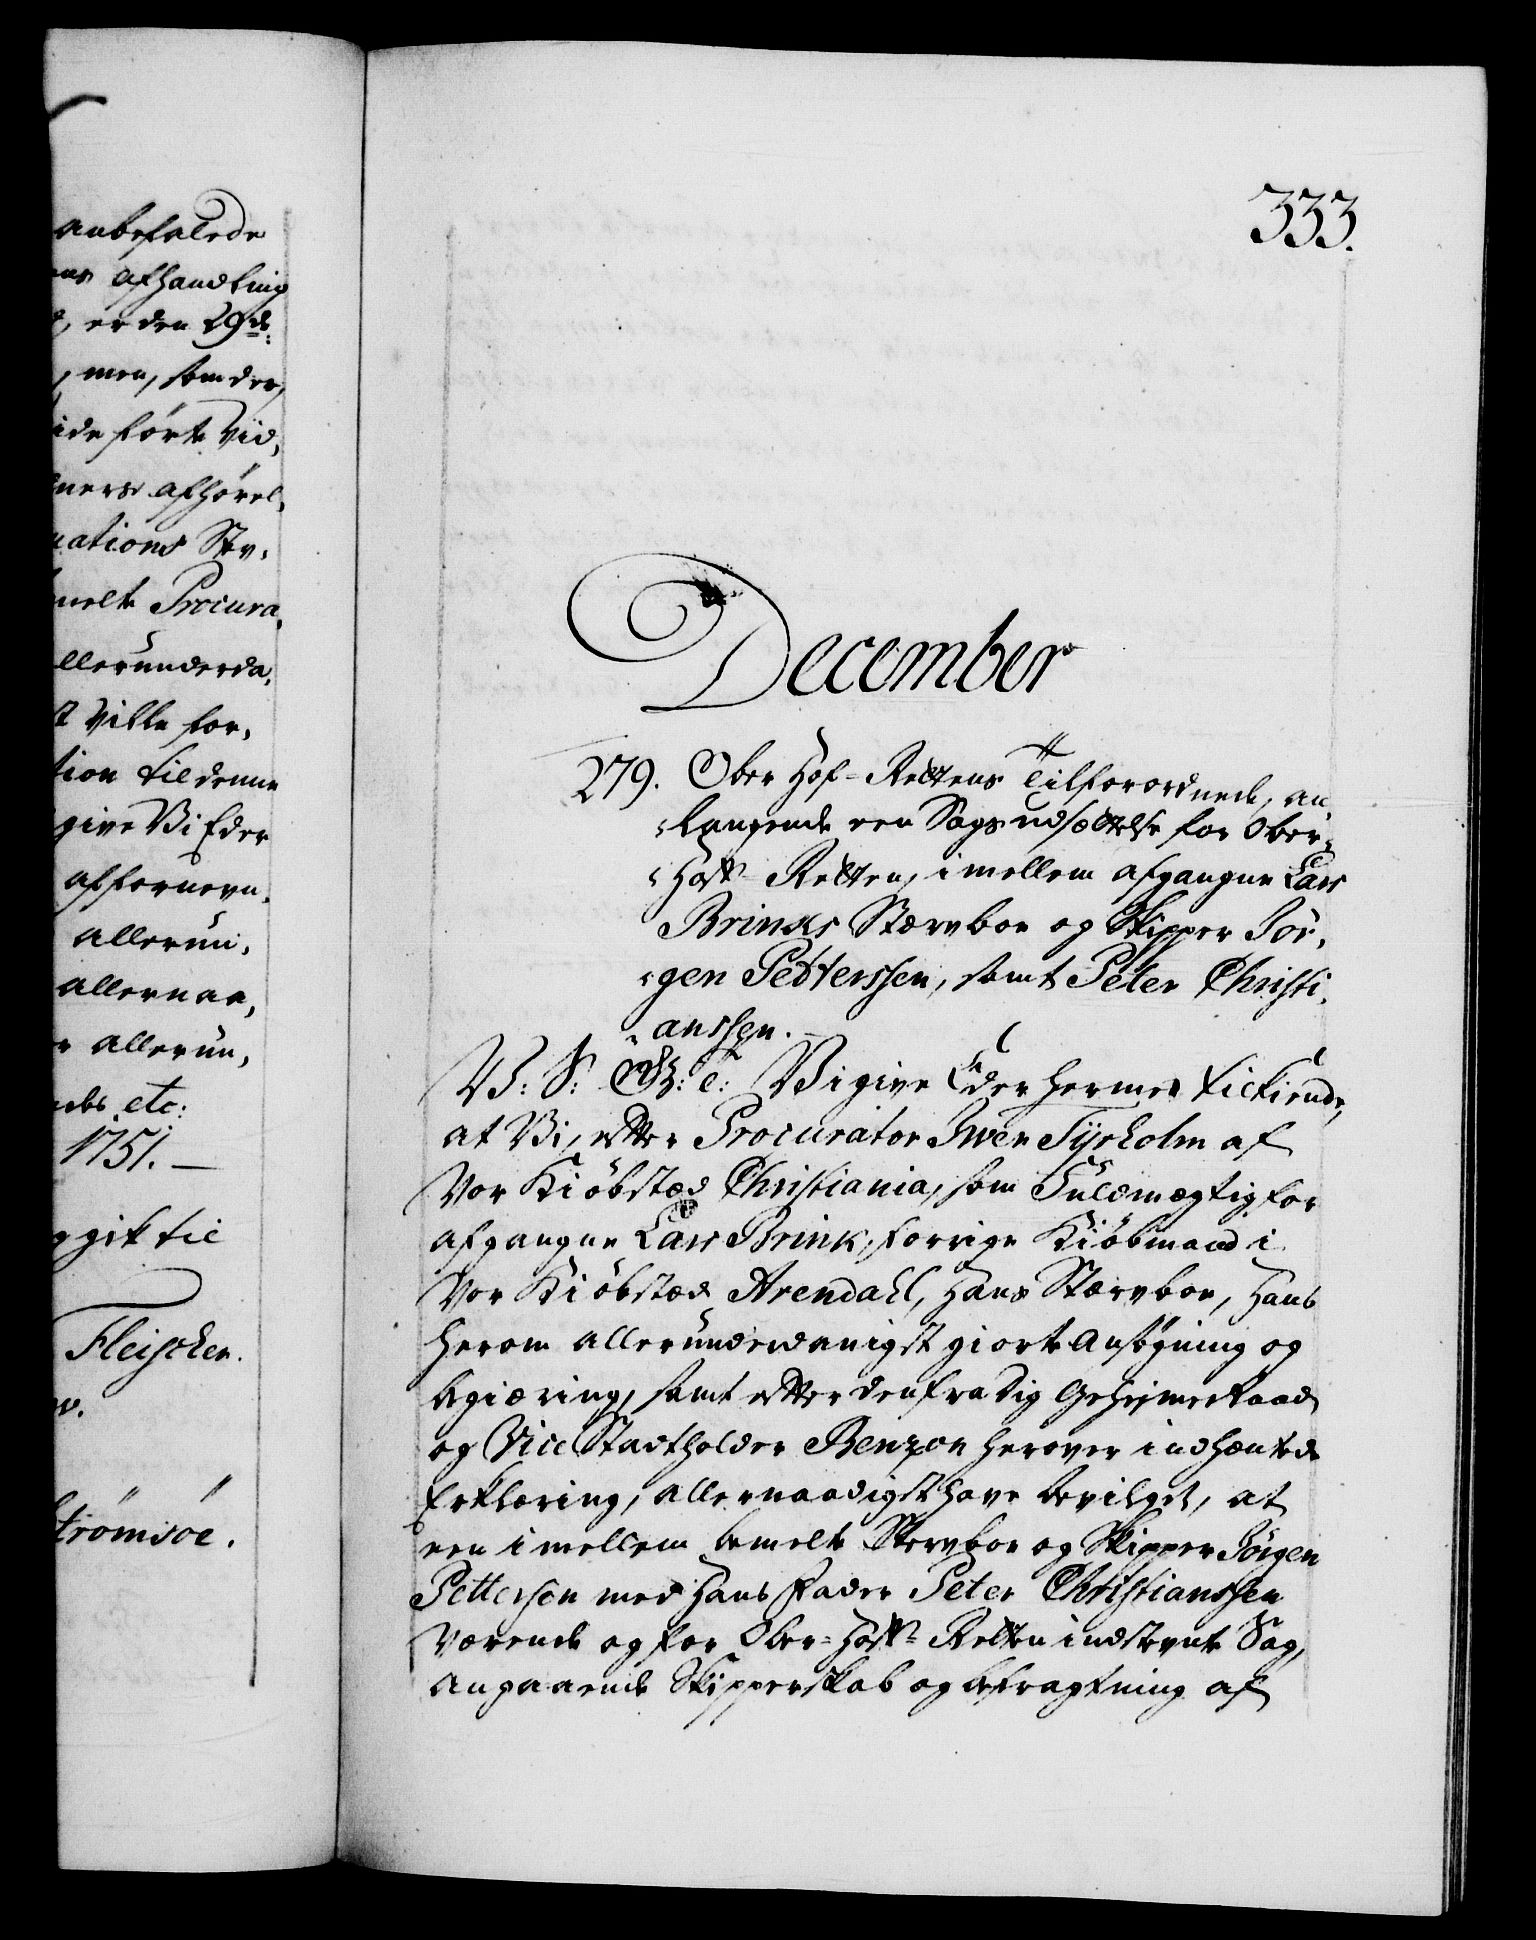 anbefalede
ens afhandling
er den 29de:
, men, som der,
ide förte Vid,
ners afhörel,
nations Stev,
melte Procura,
llerunderda,
t Ville for,
tion til denne
give Vi Eder
af fornevn,
allerun,
allernaa,
r allerun,
des etc:
1751. —
g gik til
Fleischer.
Strömsöe.
333.
December
279. Ober Hof-Rettens Tilforordnede, an
langende een Sags udsættelse for Ober-
Hoff Retten, imellem afgangne Lars
Brinks Stærvboe og Skipper Jör,
gen Petterssen, samt Peter Christi,
anssen. —
V: S: G: T: Vi give Eder hermed tilkiende,
at Vi, efter Procurator Iwer Tyrholm af
Vor Kiöbstæd Christiania, som Fuldmægtig for
afgangne Lars Brink, forrige Kiöbmand i
Vor Kiöbstæd Arendahl, Hans Stærvboe, Hans
herom allerunderdanigst giorte Ansögning og
begiæring, samt efter den fra Dig Geheime Raad
og Vice Stadtholder Benzon herover indhæntede
Erklæring, allernaadigst have bevilget, at
een imellem bemelte Stervboe og Skipper Jörgen
Pettersen med Hans Fader Peter Christianssen
Værende og for Ober-Hoff-Retten indstevnte Sag,
angaaende Skipperskab og befragtning af